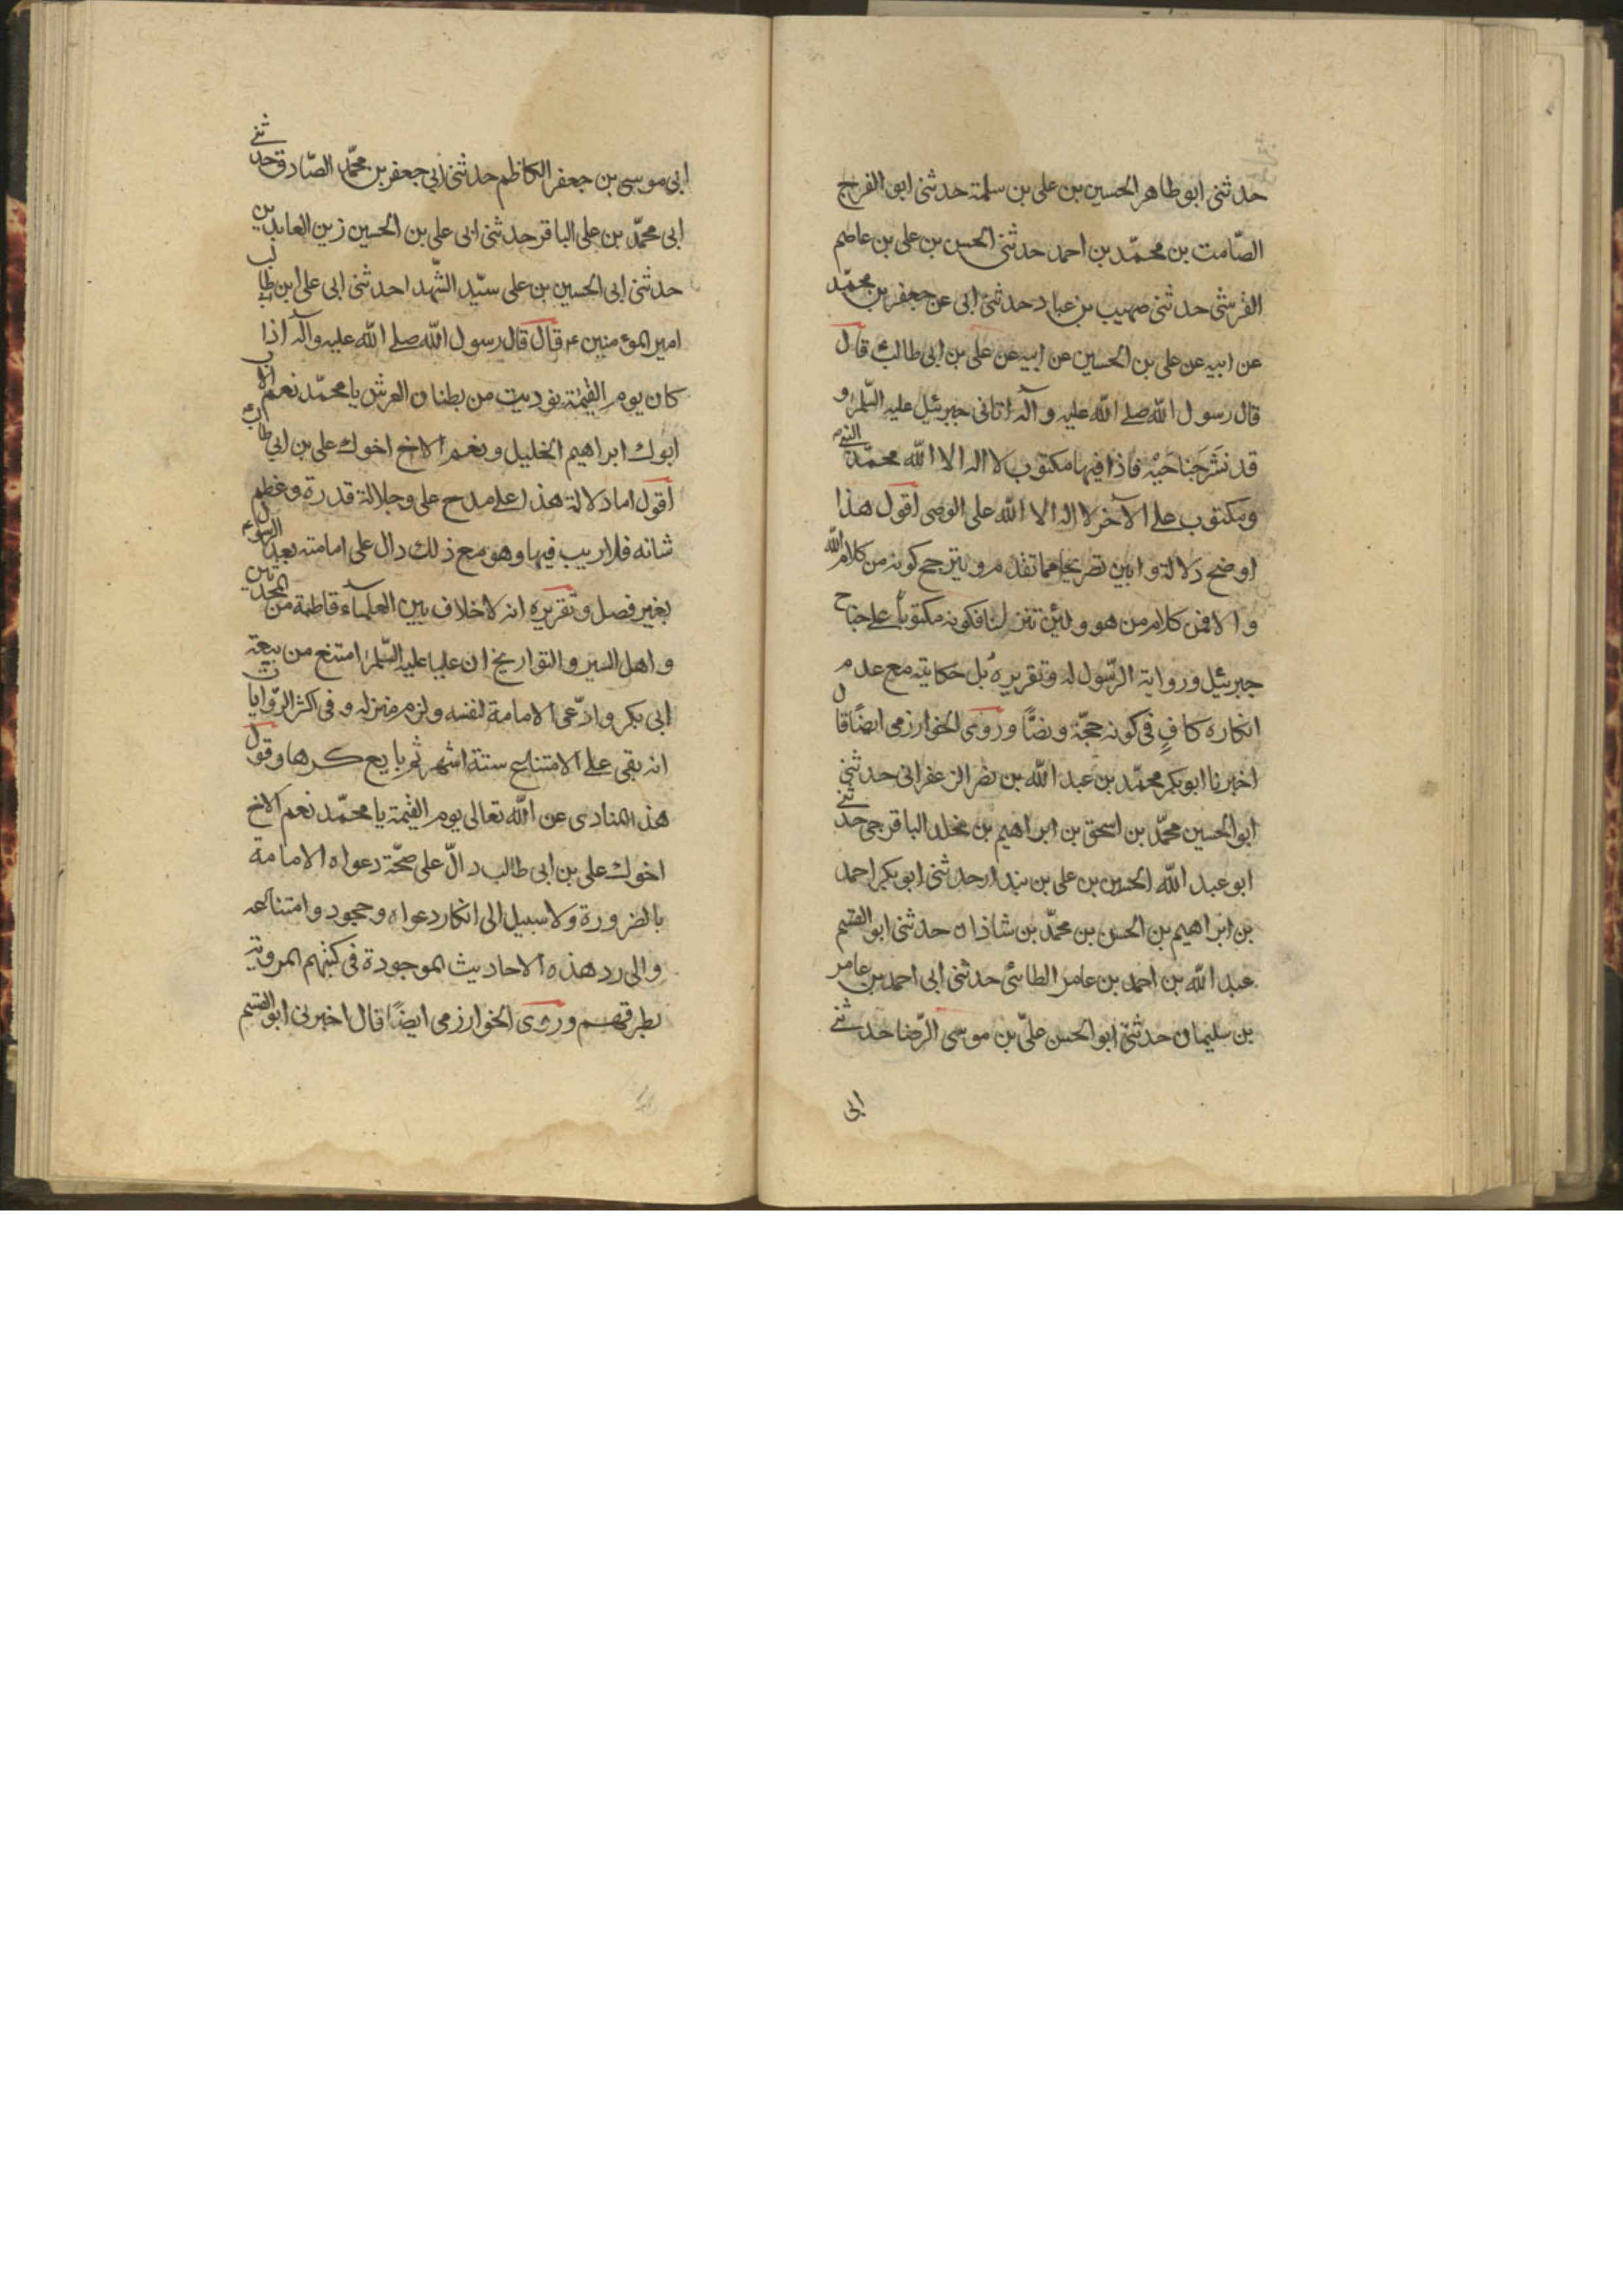 حدثنى ابو طاهر الحسين بن على بن سلمة حدثنى ابو الفرج
الصّامت بن محمّد بن احمد حدثنى الحسن بن على بن عاصم
القرشى حدثنى صهيب بن عباد حدثنى ابى عن جعفر بن محمّد
عن ابيه عن على بن الحسين عن ابيه عن على بن ابى طالب قال
قال رسول الله صلى الله عليه وآله اتانى جبرئيل عليه السّلم و
قد نَشَر جَناحَيْه فاذا فيها مكتوب لا اله الا الله محمّد النبى
ومكتوب على الآخر لا اله الا الله على الوصى اقول هذا
اوضح دلالة وابين تصريحا مما تقدم ويترجح كونه من كلام الله
والا فمن كلام من هو ولئن تنزلنا فكونه مكتوباً على جناح
جبرئيل ورواية الرّسول له وتقريره بل حكايته مع عدم
انكاره كافٍ فى كونه حجّة ونصًّا وروى الخوارزمى ايضًا قال
اخبرنا ابو بكر محمّد بن عبد الله بن نصر الزعفرانى حدثنى
ابو الحسين محمّد بن اسحق بن ابراهيم بن مخلد الباقرجى حدثنى
ابو عبد الله الحسين بن على بن بندار حدثنى ابو بكر احمد
بن ابراهيم بن الحسن بن محمّد بن شاذان حدثنى ابو القسم
عبد الله بن احمد بن عامر الطائى حدثنى ابى احمد بن عامر
بن سليمان حدثنى ابو الحسن علىّ بن موسى الرّضا حدثنى
ابى
ابى موسى بن جعفر الكاظم حدثنى ابى جعفر بن محمّد الصّادق حدثنى
ابى محمّد بن على الباقر حدثنى ابى على بن الحسين زين العابدين
حدثنى ابى الحسين بن على سيّد الشّهدا حدثنى ابى على ابن طالب
امير المؤمنين ع قال قال رسول الله صلى الله عليه وآله اذا
كان يوم القيمة نوديت من بطنان العرش يا محمّد نعم الاب
ابوك ابراهيم الخليل ونعم الاخ اخوك على بن ابى طالب
اقول اما دلالة هذا على مدح على وجلالة قدره وعظم
شانه فلا ريب فيها وهو مع ذلك دال على امامته بعد الرسول
بغير فصل وتقريره انه لا خلاف بين العلماء قاطبة من المحدثين
واهل السير والتواريخ ان عليا عليه السّلم امتنع من بيعة
ابى بكر وادّعى الامامة لنفسه ولزم منزله وفى اكثر الرّوايات
انه بقى على الامتناع ستة اشهر ثم بايع كرها وقول
هذا المنادى عن الله تعالى يوم القيمة يا محمّد نعم الاخ
اخوك على بن ابى طالب دالّ على صحّة دعواه الامامة
بالضرورة ولا سبيل الى انكار دعواه وجحود وامتناعه
والى رد هذه الاحاديث الموجودة فى كتبهم المروية
بطرقهم وروى الخوارزمى ايضًا قال اخبرنى ابو القسم